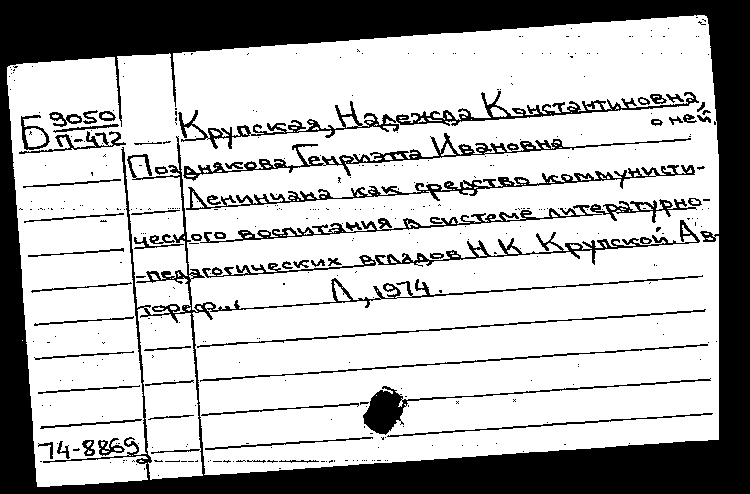 Б 9050
П-472
Крупская, Надежда Константиновна,
о ней.
Позднякова, Генриэтта Ивановна
Лениниана как средство коммунисти-
ческого воспитания в системе литературно-
-педагогических взглядов Н.К. Крупской. Ав-
тореф... Л., 1974.
74-8869